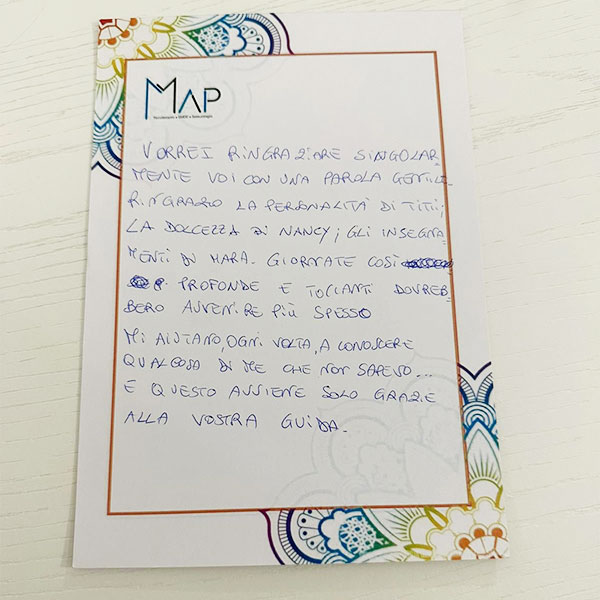 MAP
VORREI RINGRAZIARE SINGOLAR
MENTE VOI CON UNA PAROLA GENTILE.
RINGRAZIO LA PERSONALITÀ DI TITTI,
LA DOLCEZZA DI NANCY, GLI INSEGNA
MENTI DI MARA. GIORNATE COSÌ
PROFONDE E TOCCANTI DOVREB
BERO AVVENIRE PIÙ SPESSO
MI AIUTANO, OGNI VOLTA, A CONOSCERE
QUALCOSA DI ME CHE NON SAPEVO...
E QUESTO AVVIENE SOLO GRAZIE
ALLA VOSTRA GUIDA.